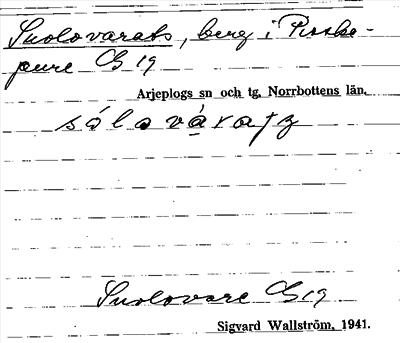 Suolovarats, berg i Pisske-
jaure Cb 19
Arjeplogs sn och tg, Norrbottens län.
sålováratz
Suolovare Cb 19
Sigvard Wallström, 1941.